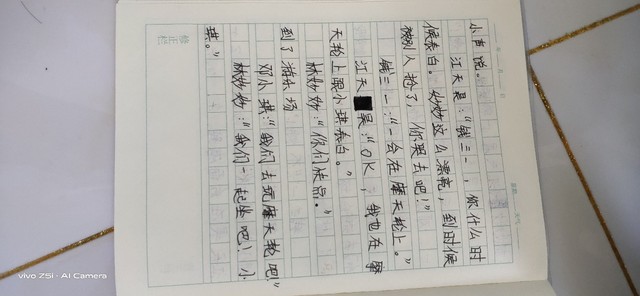 小声说。
江天昊:“钱三一,你什么时
候表白。妙妙这么漂亮,到时候
被别人抢了,你哭去吧!”
钱三一:“一会在摩天轮上。”
江天昊:“OK,我也在摩
天轮上跟小琪表白。”
林妙妙:“你们快点。”
到了游乐场
邓小琪:“我们去玩摩天轮吧!”
林妙妙:“我们一起坐吧!小
琪。”
修正栏
vivo Z5i · AI Camera